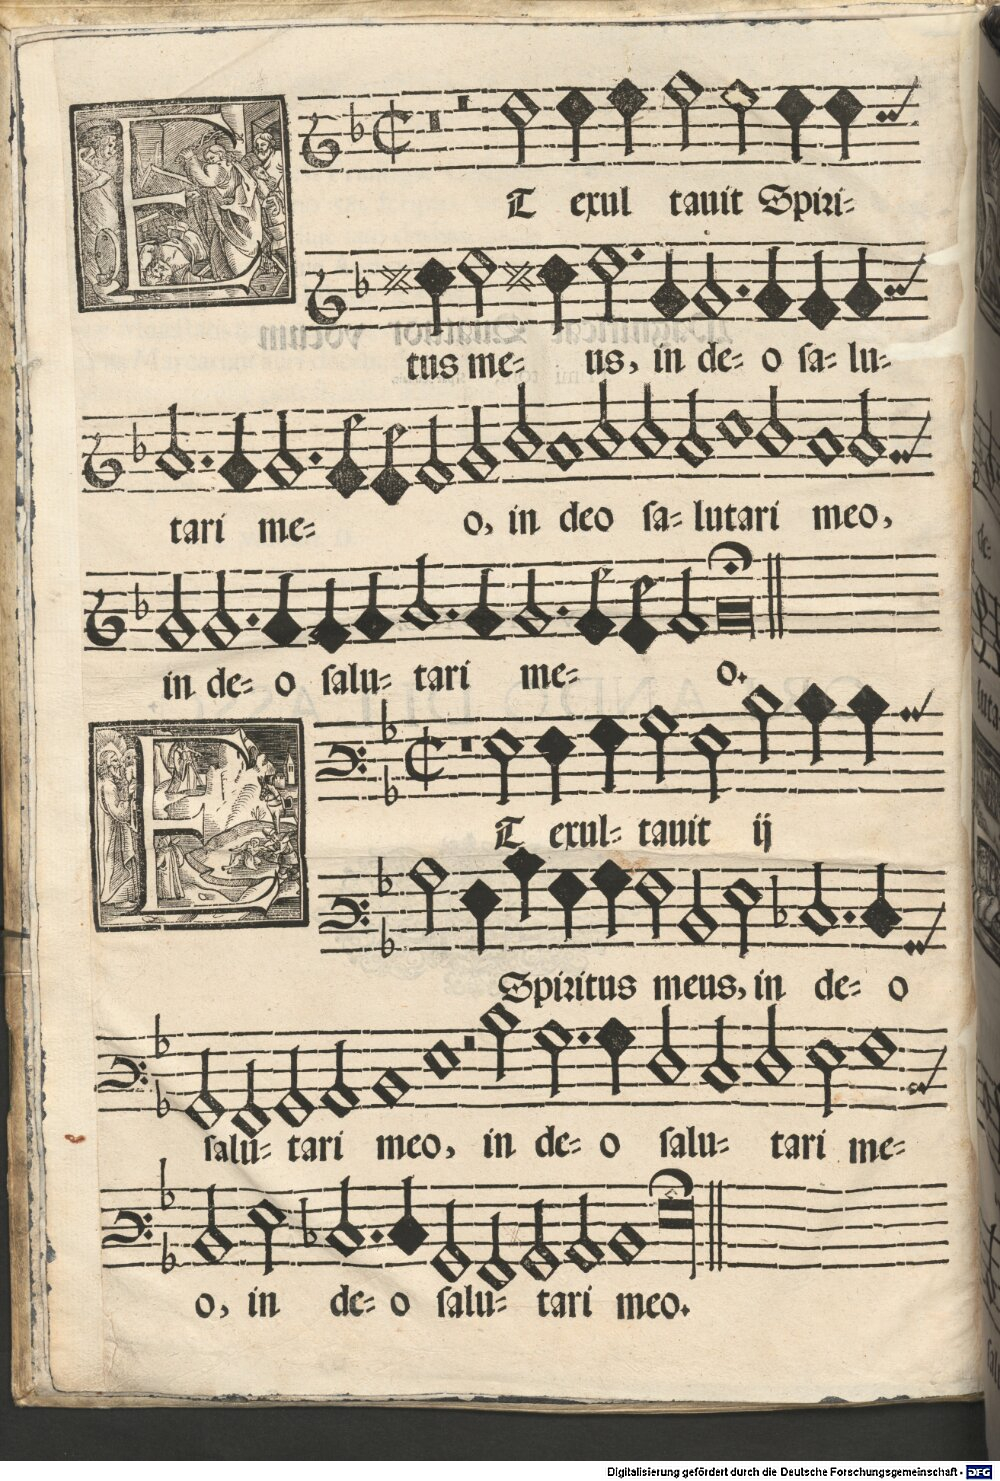 ET exultauit Spiri-
tus me- us, in de- o sa- lu-
tari me- o, in deo sa- lutari meo,
in de- o salu- tari me- o.
ET exul- tauit ij
Spiritus meus, in de- o
salu- tari meo, in de- o salu- tari me-
o, in de- o salu- tari meo.
Digitalisierung gefördert durch die Deutsche Forschungsgemeinschaft - DFG